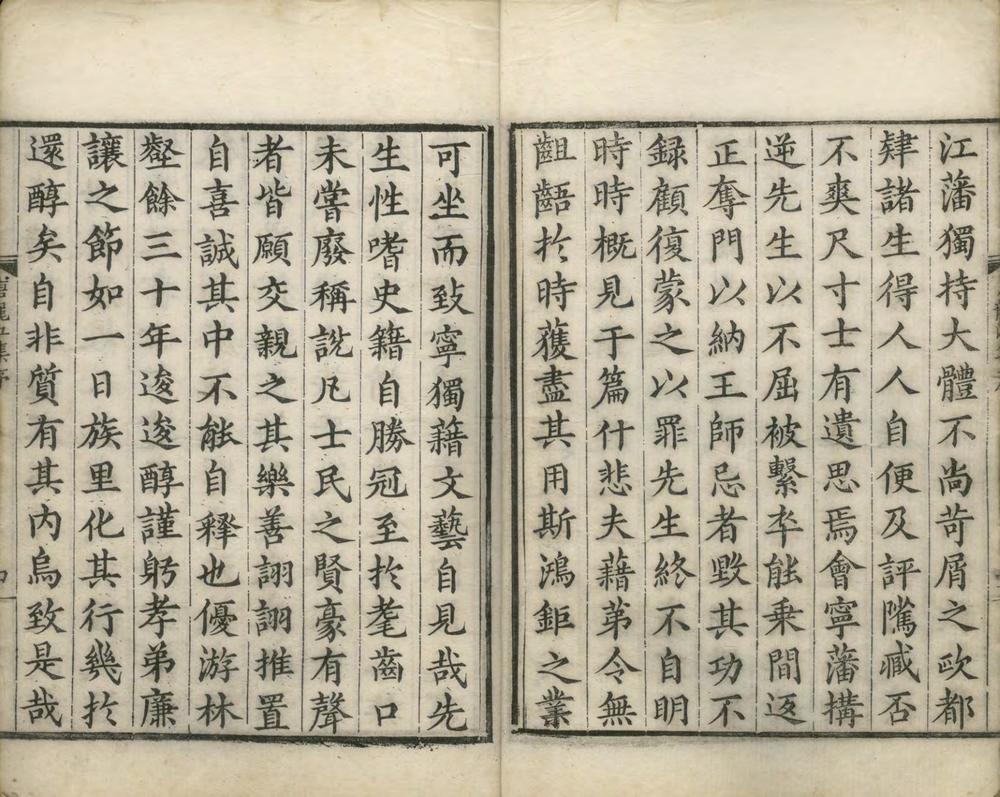 江藩獨持大體不尚苛屑之歐都
肄諸生得人人自便及評隲臧否
不爽尺寸士有遺思焉會寧藩搆
逆先生以不屈被繫卒能乗間返
正奪門以納王師忌者毀其功不
録顧復蒙之以罪先生終不自明
時時概見于篇什悲夫藉苐令無
齟齬扵時獲盡其用斯鴻鉅之業
可坐而致寧獨藉文藝自見哉先
生性嗜史籍自勝冠至扵耄齒口
未嘗廢稱説凡士民之賢豪有聲
者皆願交親之其樂善詡詡推置
自喜誠其中不能自釋也優游林
壑餘三十年逡逡醇謹躬孝弟廉
讓之節如一日族里化其行幾扵
還醇矣自非質有其内烏致是哉